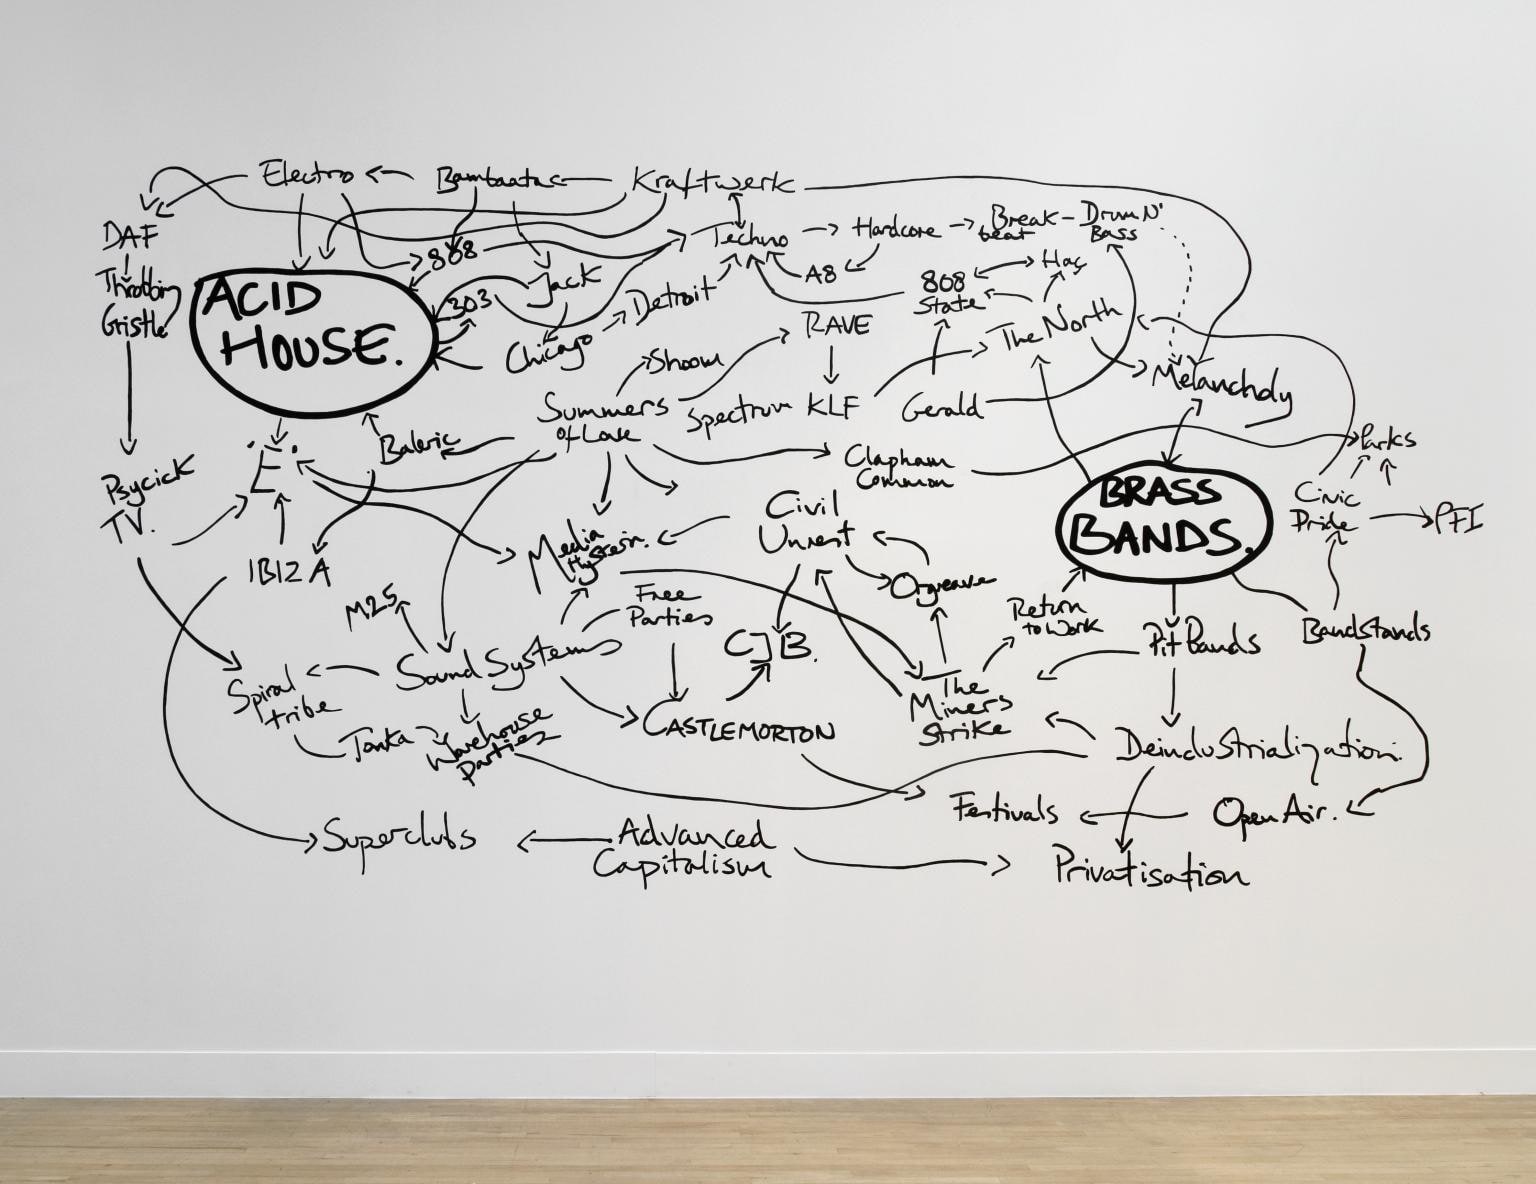 Electro
Bambaataa
Kraftwerk
DAF
Throbbing
Gristle
ACID
HOUSE.
808
303
Jack
Chicago
Detroit
Techno
Hardcore
Break-
beat
Drum N'
Bass
A8
808
State
Haç
The North
RAVE
Shoom
Summers
of Love
Spectrum
KLF
Gerald
Melancholy
Baleric
'E'.
Psycick
TV.
IBIZA
Clapham
Common
Parks
BRASS
BANDS.
Civic
Pride
PFI
Civil
Unrest
Media
Hysteria.
Orgreave
M25
Free
Parties
CJB.
Return
to Work
Pit Bands
Bandstands
Sound Systems
Spiral
tribe
Tonka
Warehouse
parties
CASTLEMORTON
The
Miners
Strike
Deindustrialization.
Festivals
Open Air.
Superclubs
Advanced
Capitalism
Privatisation